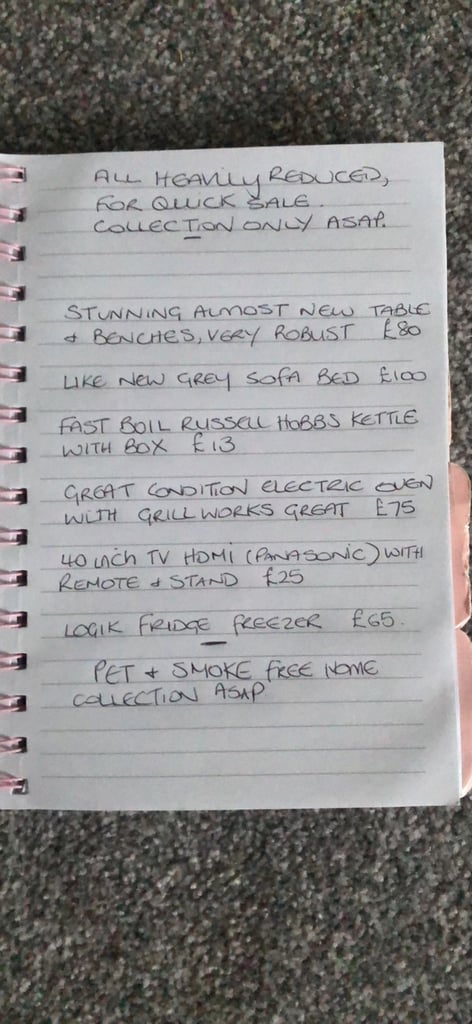 ALL HEAVILY REDUCED,
FOR QUICK SALE.
COLLECTION ONLY ASAP.
STUNNING ALMOST NEW TABLE
& BENCHES, VERY ROBUST £80
LIKE NEW GREY SOFA BED £100
FAST BOIL RUSSELL HOBBS KETTLE
WITH BOX £13
GREAT CONDITION ELECTRIC OVEN
WITH GRILL WORKS GREAT £75
40 inch TV HDMI (PANASONIC) WITH
REMOTE & STAND £25
LOGIK FRIDGE FREEZER £65.
PET & SMOKE FREE HOME
COLLECTION ASAP